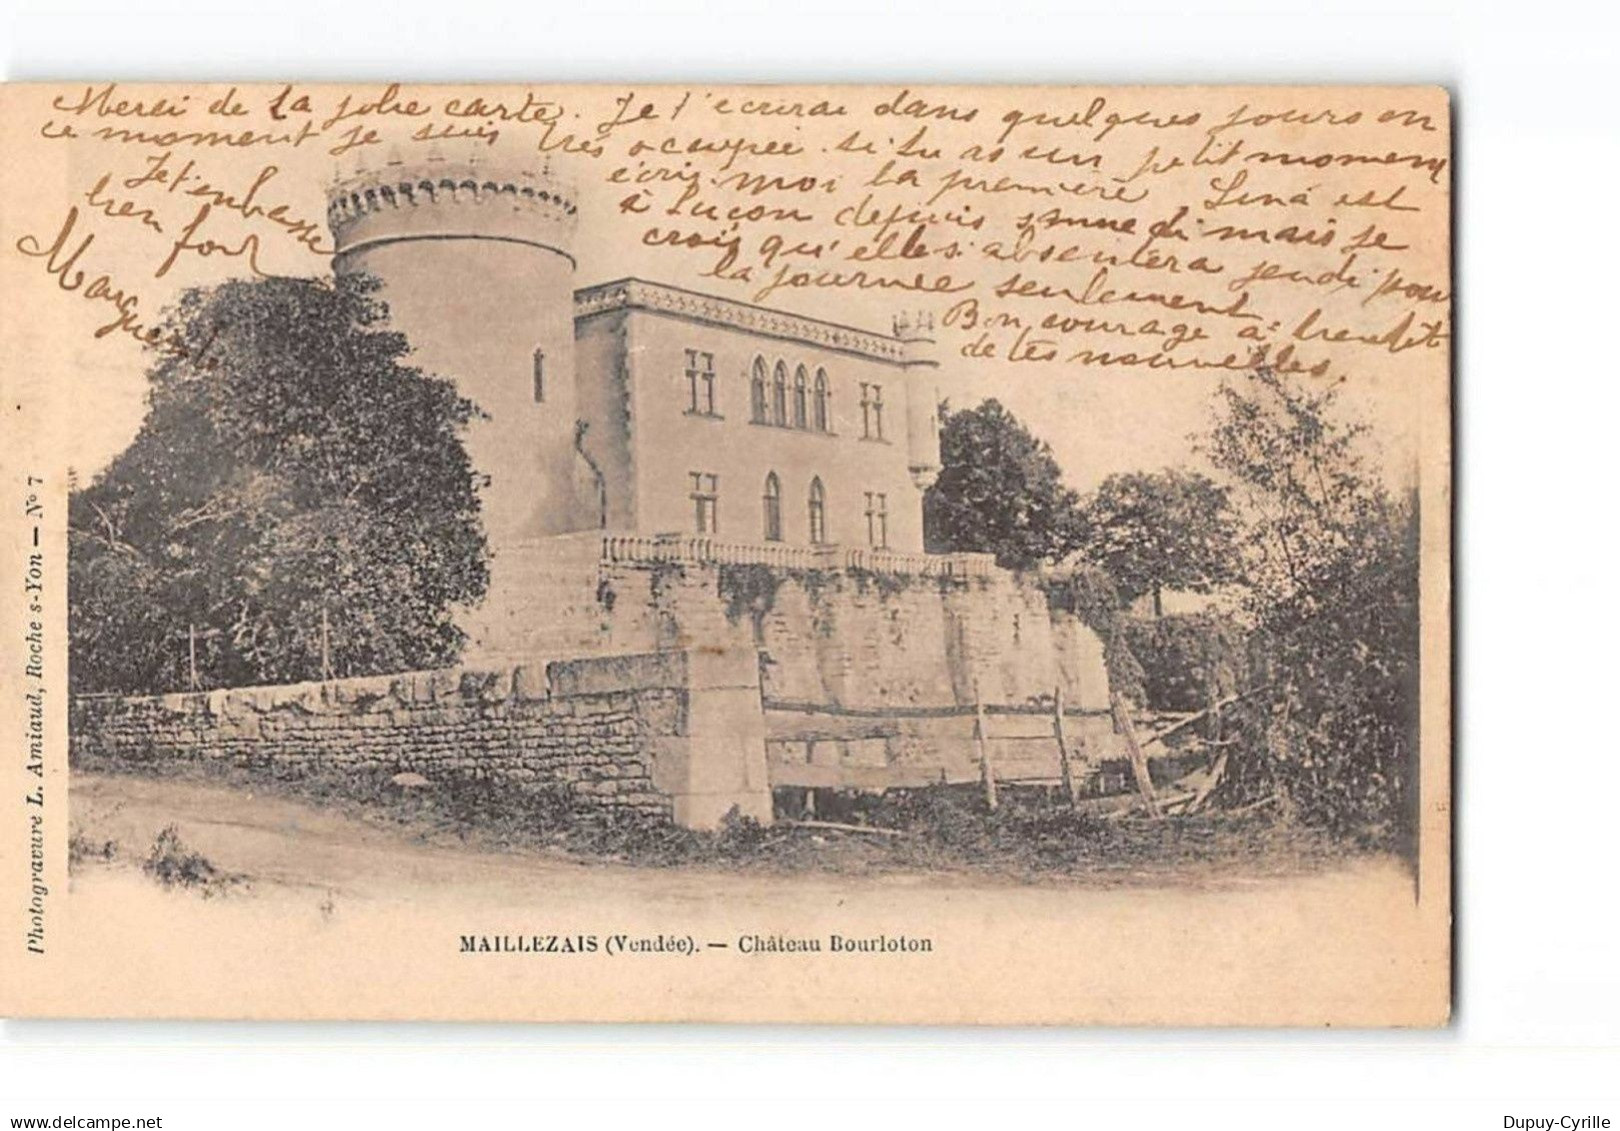 Merci de la jolie carte. Je t'ecrirai dans quelques jours en
ce moment je suis très occupée. si tu as un petit moment
écris-moi la première Lina est
à Luçon depuis samedi mais je
crois qu'elle s'absentera jeudi pour
la journée seulement
Bon courage a bientôt
de tes nouvelles.
Je t'embrasse
bien fort
Marguerite
Photogravure L. Amiaud, Roche s-Yon — N° 7
MAILLEZAIS (Vendée). — Château Bourloton
delcampe.net
Dupuy-Cyrille